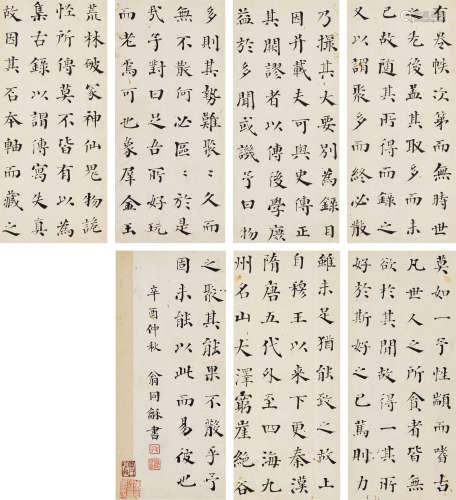 有卷帙次第而無時世
之先後蓋其取多而未
已故隨其所得而錄之
又以謂聚多而終必散
乃撮其大要別為錄目
因并載夫可與史傳正
其闕謬者以傳後學庶
益於多聞或譏予曰物
多則其勢難聚〻久而
無不散何必區〻於是
哉予對曰足吾所好玩
而老焉可也象犀金玉
荒林破冢神仙鬼物詭
怪所傳莫不皆有以為
集古錄以謂傳寫失真
故因其石本軸而藏之
莫如一予性顓而嗜古
凡世人之所貪者皆無
欲於其間故得一其所
好於斯好之已篤則力
雖未足猶能致之故上
自穆王以來下更秦漢
隋唐五代外至四海九
州名山大澤窮崖絕谷
之聚其能果不散乎予
固未能以此而易彼也
辛酉仲秋 翁同龢書